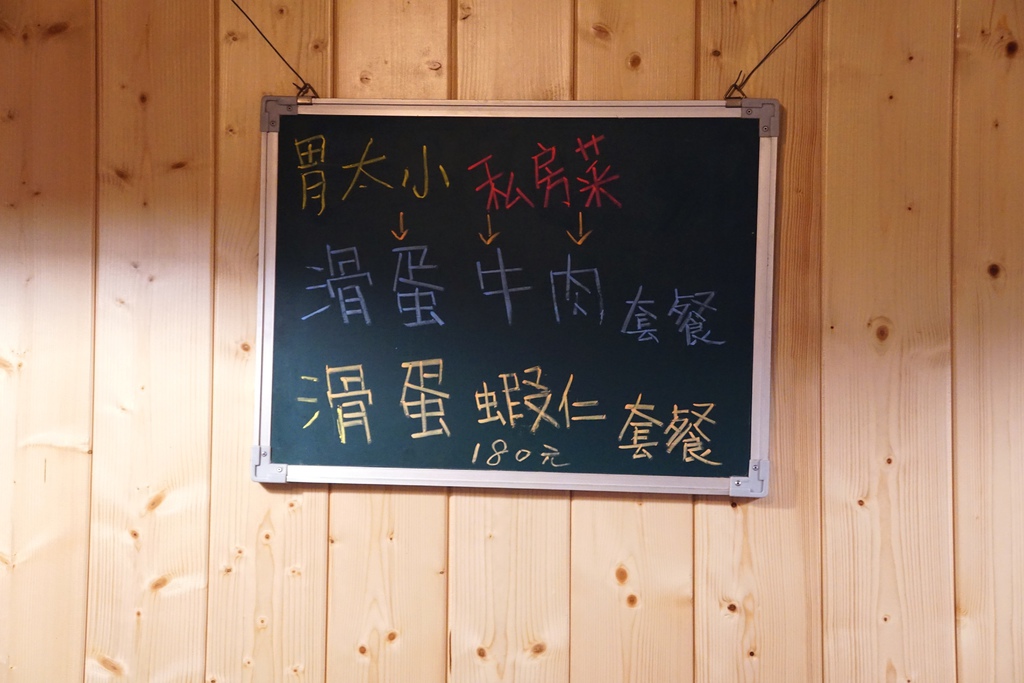 胃太小 私房菜
↓ ↓ ↓
滑蛋牛肉套餐
滑蛋蝦仁套餐
180元